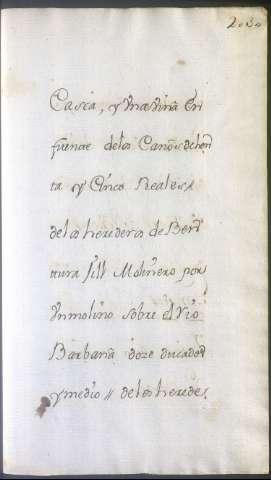 2030
Casia, y Vna Vina En
fuente delos Canõs ochen
ta y Cinco Reales
delos herederos de Ben
tura Sill Molinero por
Vn molino sobre el rio
Barbana doze ducados
y medio // delos herede